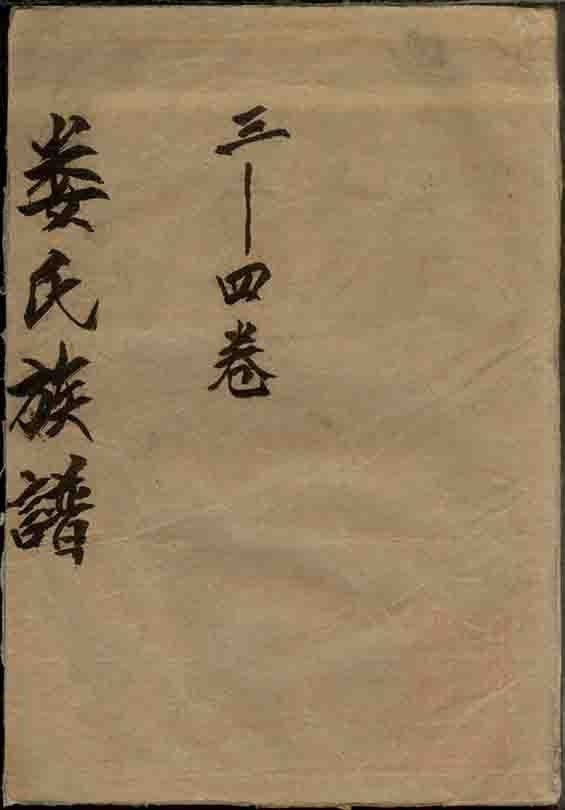 三—四卷
娄氏族譜